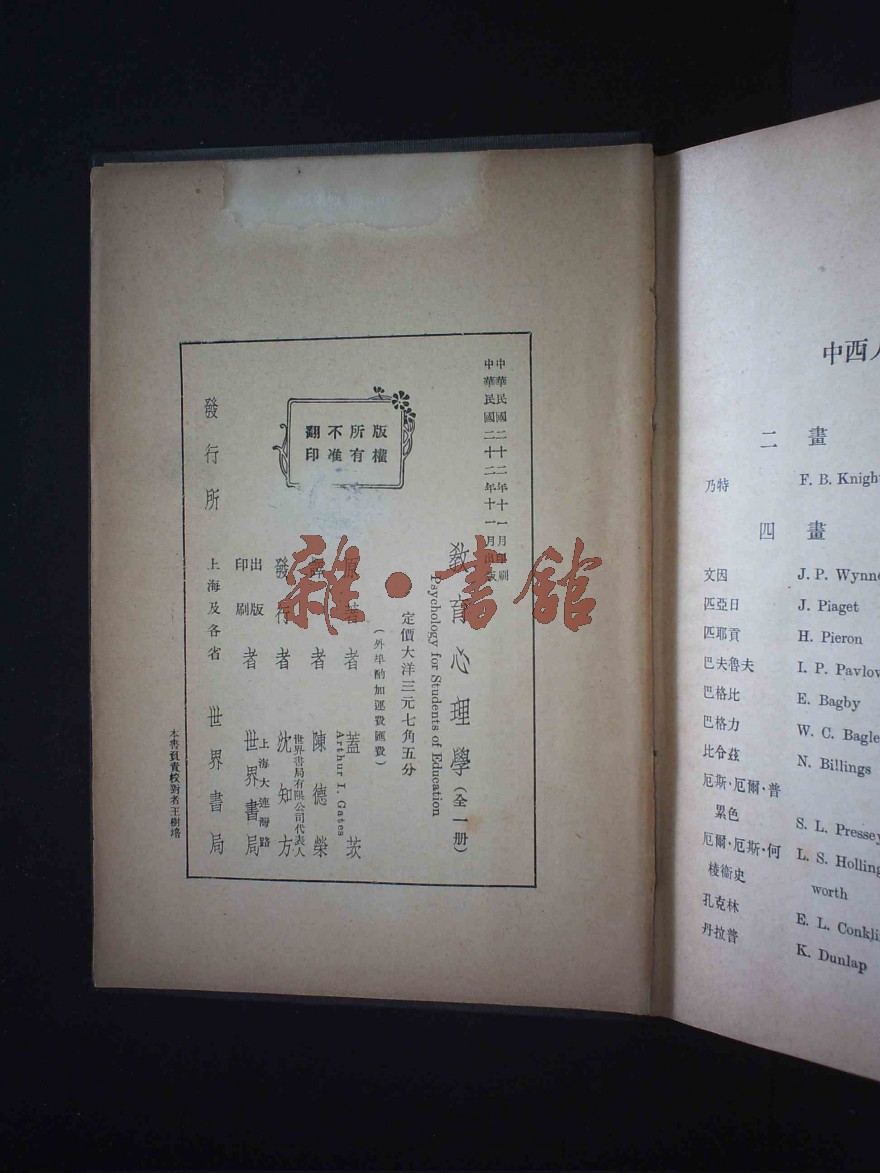 中華民國二十二年十一月印刷
中華民國二十二年十一月出版
教育心理學(全一册)
Psychology for Students of Education
定價大洋三元七角五分
(外埠酌加運費匯費)
原著者 蓋茨
Arthur I. Gates
譯者 陳德榮
世界書局有限公司代表人
發行者 沈知方
出版印刷者 上海大連灣路 世界書局
發行所 上海及各省 世界書局
版權所有
不准翻印
本書負責校對者王樹培
雜·書館
中西人
二畫
乃特 F. B. Knigh
四畫
文因 J. P. Wynne
匹亞日 J. Piaget
匹耶貢 H. Pieron
巴夫魯夫 I. P. Pavlov
巴格比 E. Bagby
巴格力 W. C. Bagle
比令茲 N. Billings
厄斯·厄爾·普
累色 S. L. Pressey
厄爾·厄斯·何 L. S. Holling
棱衞史 worth
孔克林 E. L. Conkli
丹拉普 K. Dunlap